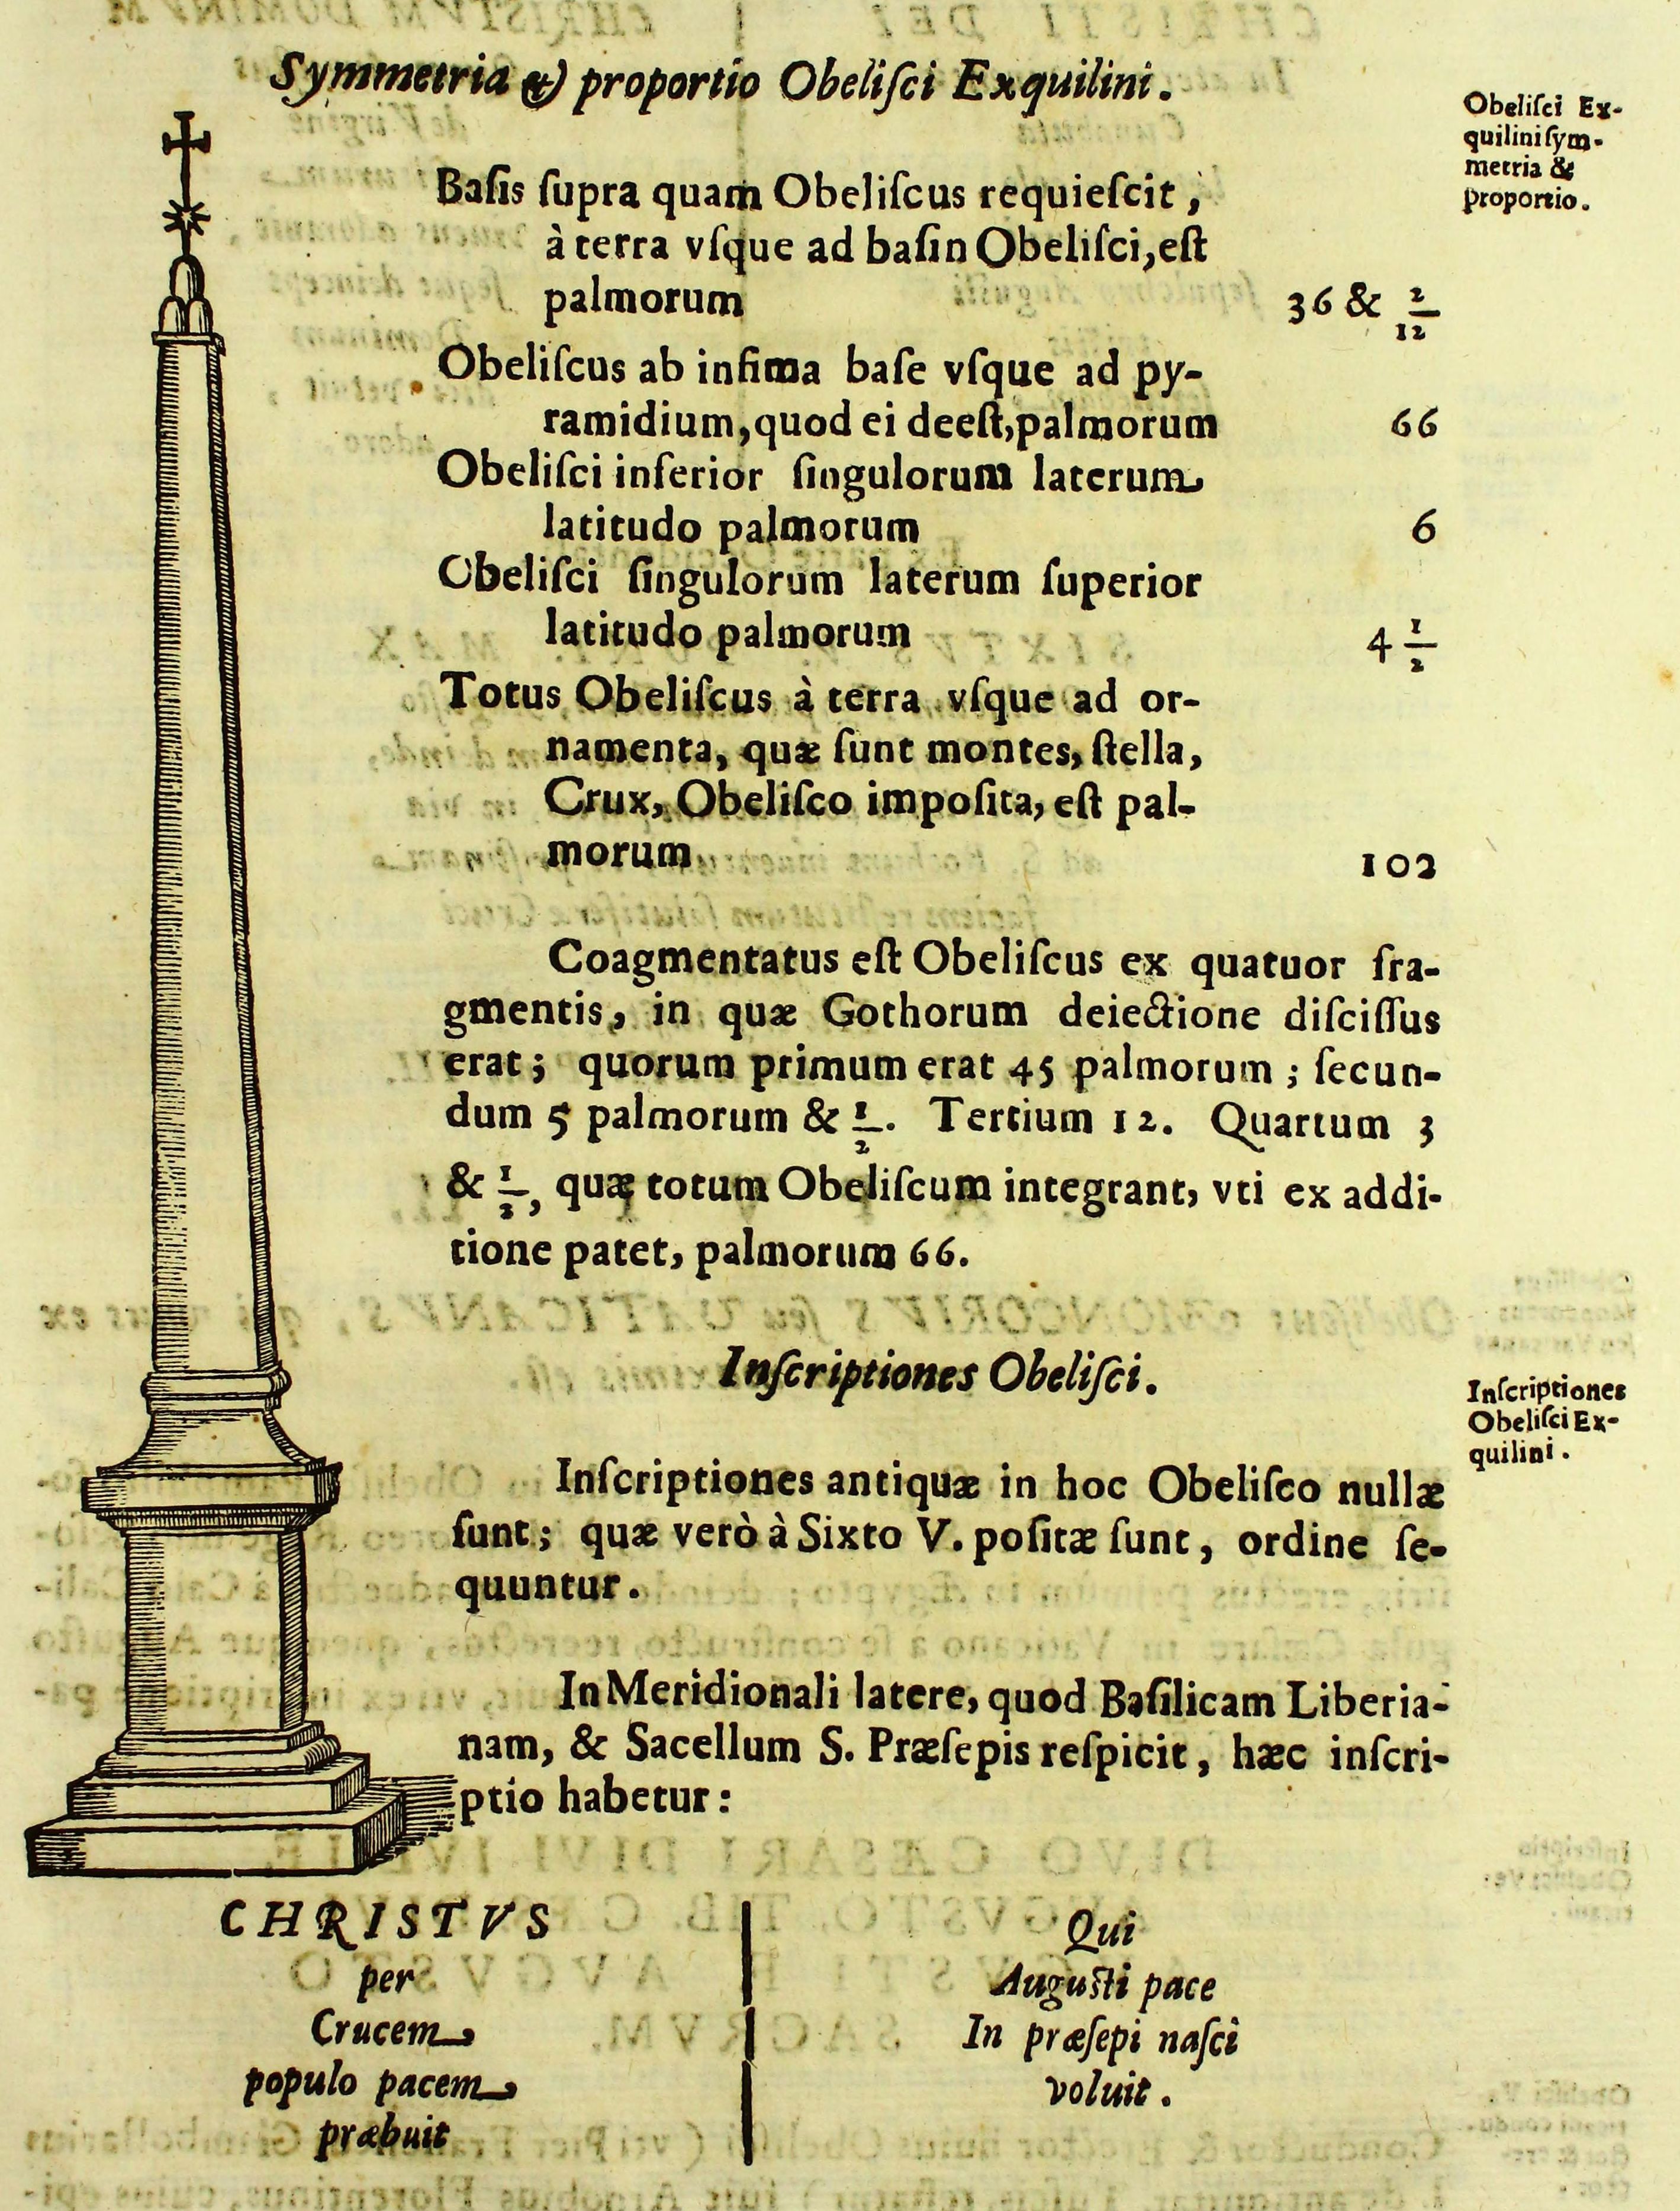 Symmetria & proportio Obeliſci Exquilini.
Obeliſci Ex-
quilini ſym-
metria &
proportio.
Baſis ſupra quam Obeliſcus requieſcit,
à terra vſque ad baſin Obeliſci, eſt
palmorum 36 & 2/12
Obeliſcus ab infima baſe vſque ad py-
ramidium, quod ei deeſt, palmorum 66
Obeliſci inferior ſingulorum laterum
latitudo palmorum 6
Obeliſci ſingulorum laterum ſuperior
latitudo palmorum 4 1/2
Totus Obeliſcus à terra vſque ad or-
namenta, quæ ſunt montes, ſtella,
Crux, Obeliſco impoſita, eſt pal-
morum 102
Coagmentatus eſt Obeliſcus ex quatuor fra-
gmentis, in quæ Gothorum deiectione diſciſſus
erat; quorum primum erat 45 palmorum; ſecun-
dum 5 palmorum & 1/2. Tertium 12. Quartum 3
& 1/2, quæ totum Obeliſcum integrant, vti ex addi-
tione patet, palmorum 66.
Inſcriptiones Obeliſci.
Inſcriptiones
Obeliſci Ex-
quilini.
Inſcriptiones antiquæ in hoc Obeliſco nullæ
ſunt; quæ verò à Sixto V. poſitæ ſunt, ordine ſe-
quuntur.
In Meridionali latere, quod Baſilicam Liberia-
nam, & Sacellum S. Præſepis reſpicit, hæc inſcri-
ptio habetur:
CHRISTVS
per
Crucem
populo pacem
præbuit
Qui
Auguſti pace
In præſepi naſci
voluit.